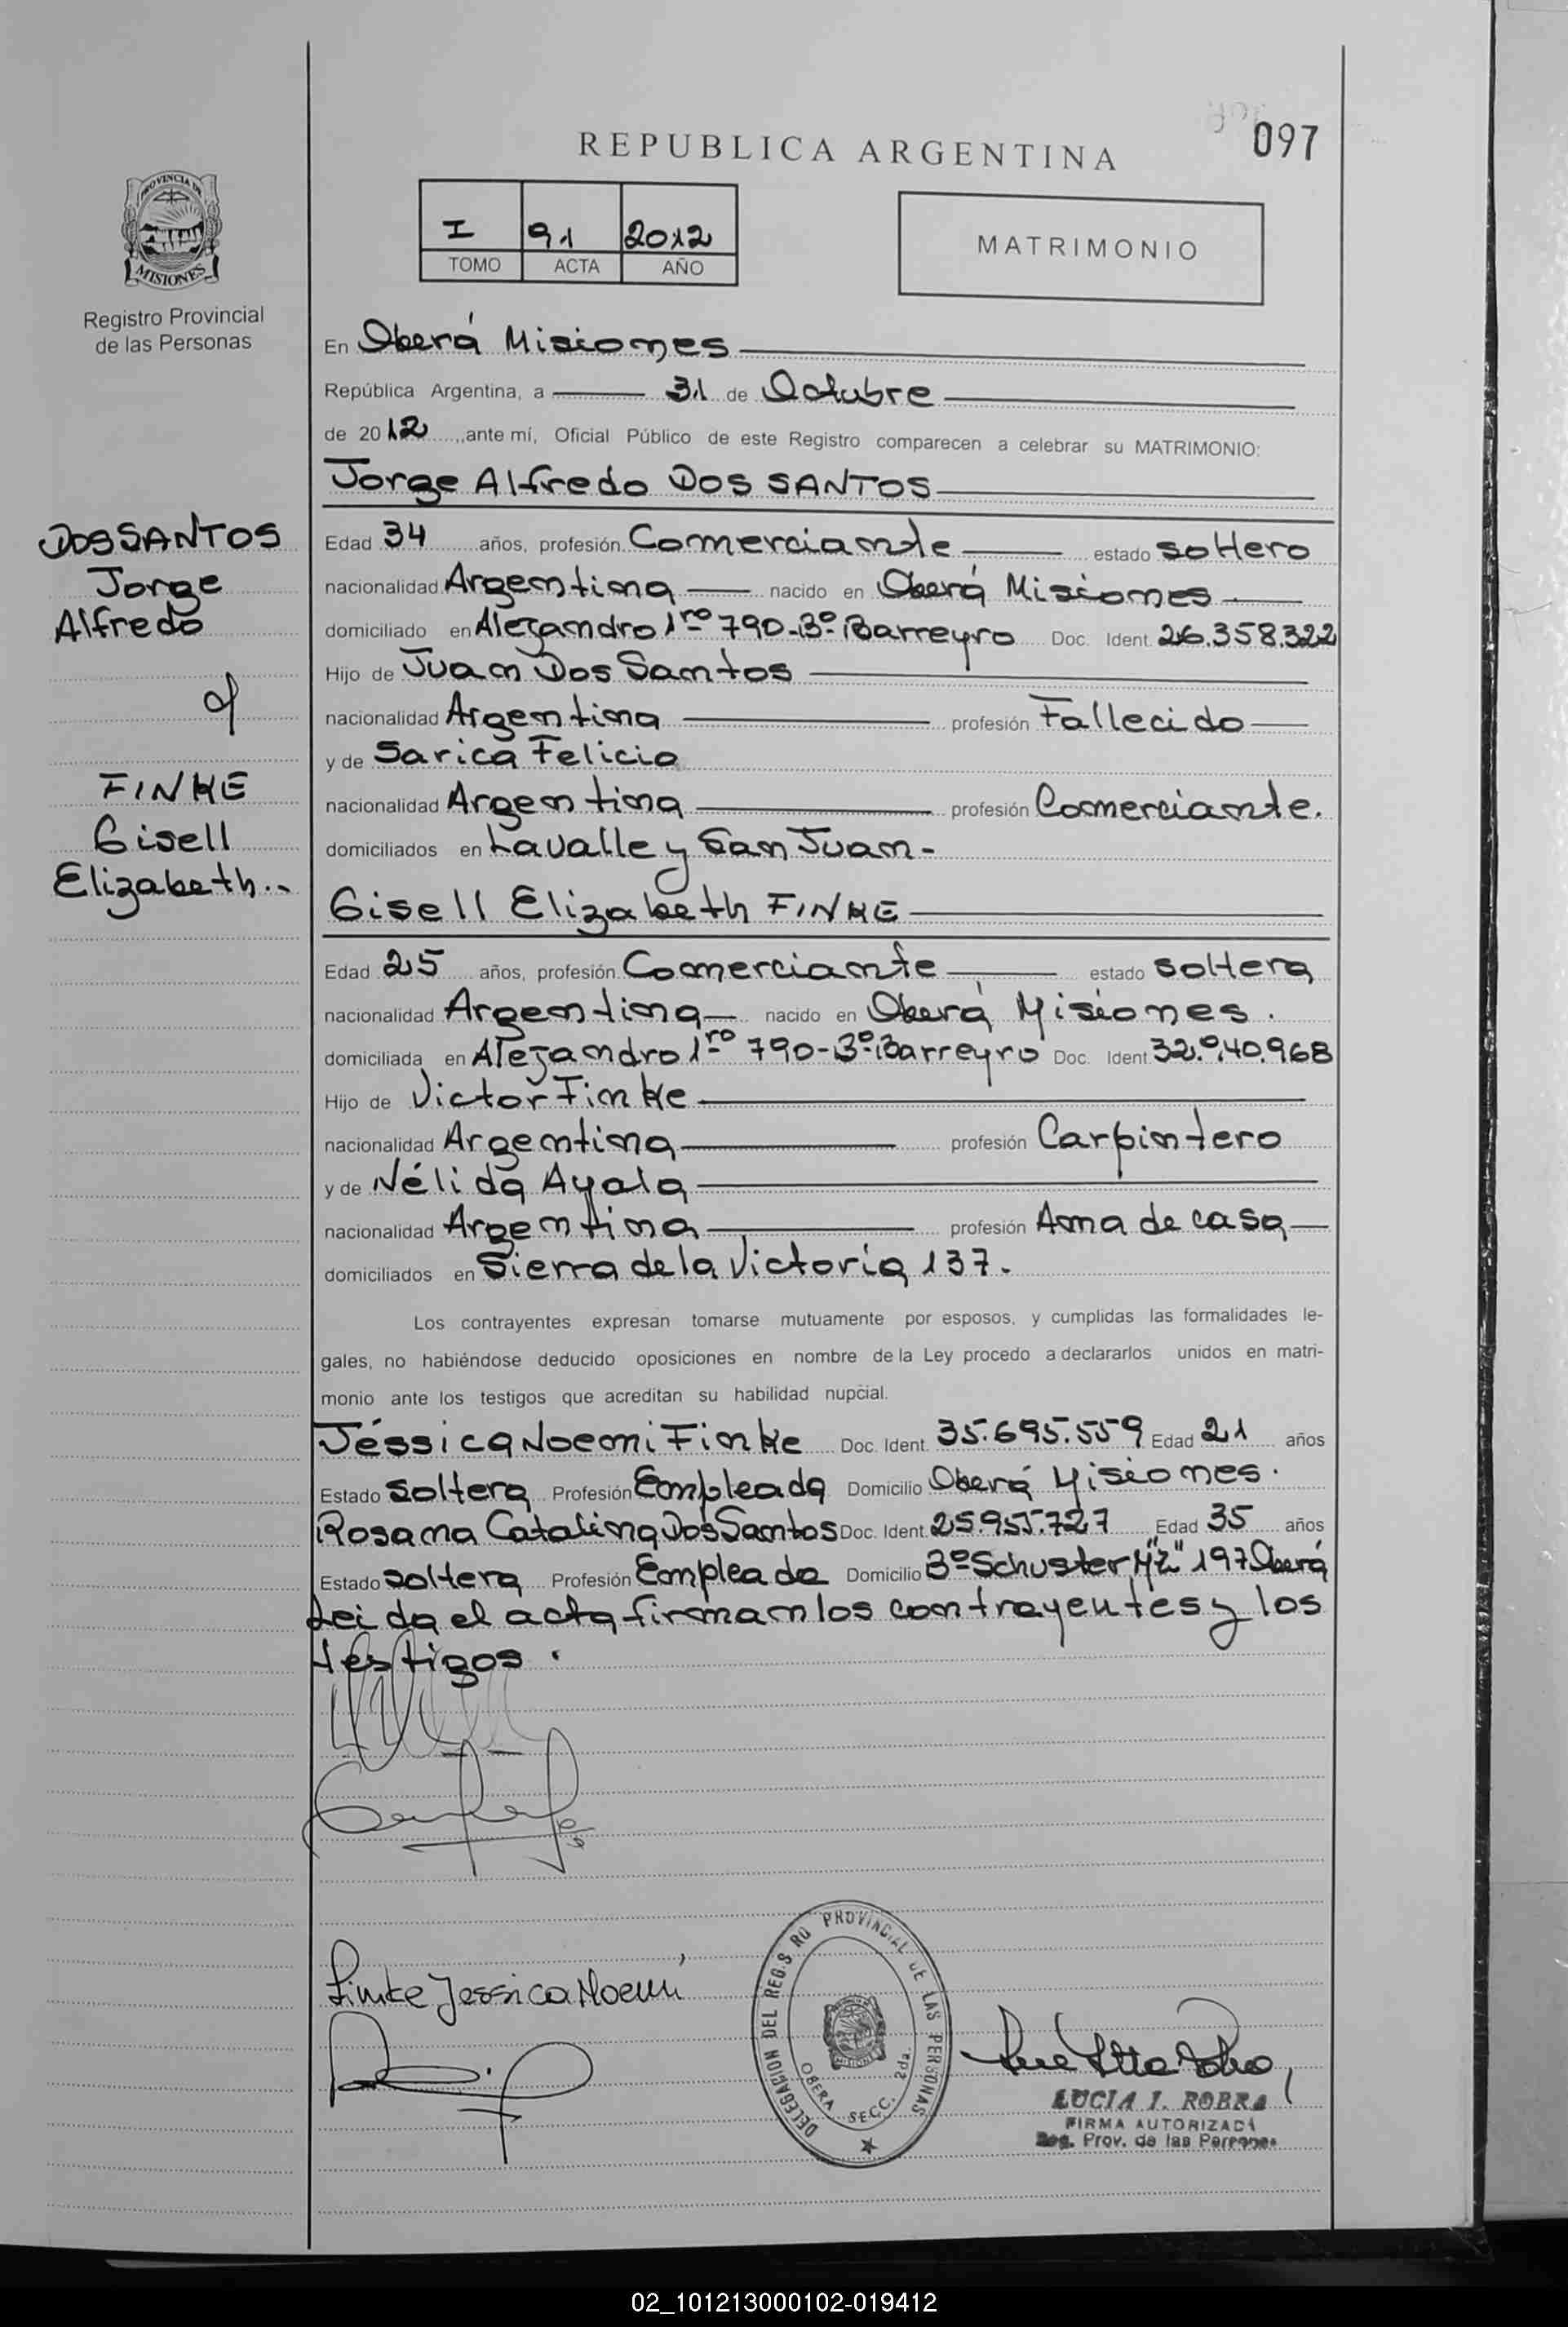 097
REPUBLICA ARGENTINA
PROVINCIA DE
MISIONES
Registro Provincial
de las Personas
I 91 2012
TOMO ACTA AÑO
MATRIMONIO
En Oberá Misiones
República Argentina, a 31 de Octubre
de 2012, ante mí, Oficial Público de este Registro comparecen a celebrar su MATRIMONIO:
Jorge Alfredo DOS SANTOS
DOS SANTOS
Jorge
Alfredo
y
FINKE
Gisell
Elizabeth..
Edad 34 años, profesión Comerciante estado soltero
nacionalidad Argentina nacido en Oberá Misiones
domiciliado en Alejandro 1ro 790-Bº Barreyro Doc. Ident. 26.358.322
Hijo de Juan Dos Santos
nacionalidad Argentina profesión Fallecido
y de Sarica Felicia
nacionalidad Argentina profesión Comerciante.
domiciliados en Lavalle y San Juan-
Gisell Elizabeth FINKE
Edad 25 años, profesión Comerciante estado soltera
nacionalidad Argentina nacido en Oberá Misiones.
domiciliada en Alejandro 1ro 790-Bº Barreyro Doc. Ident. 32.040.968
Hijo de Victor Finke
nacionalidad Argentina profesión Carpintero
y de Nélida Ayala
nacionalidad Argentina profesión Ama de casa
domiciliados en Sierra de la Victoria 137.
Los contrayentes expresan tomarse mutuamente por esposos, y cumplidas las formalidades le-
gales, no habiéndose deducido oposiciones en nombre de la Ley procedo a declararlos unidos en matri-
monio ante los testigos que acreditan su habilidad nupcial.
Jéssica Noemi Finke Doc. Ident. 35.695.559 Edad 21 años
Estado soltera Profesión Empleada Domicilio Oberá Misiones.
Rosana Catalina Dos Santos Doc. Ident. 25.955.727 Edad 35 años
Estado soltera Profesión Empleada Domicilio Bº Schuster Mz "" 197 Oberá
Leida el acta firman los contrayentes y los
testigos.
Finke Jessica Noemí
DELEGACION DEL REGISTRO PROVINCIAL DE LAS PERSONAS
OBERA SECC. 2da.
LUCIA I. ROBRA
FIRMA AUTORIZADA
Reg. Prov. de las Personas
02_101213000102-019412